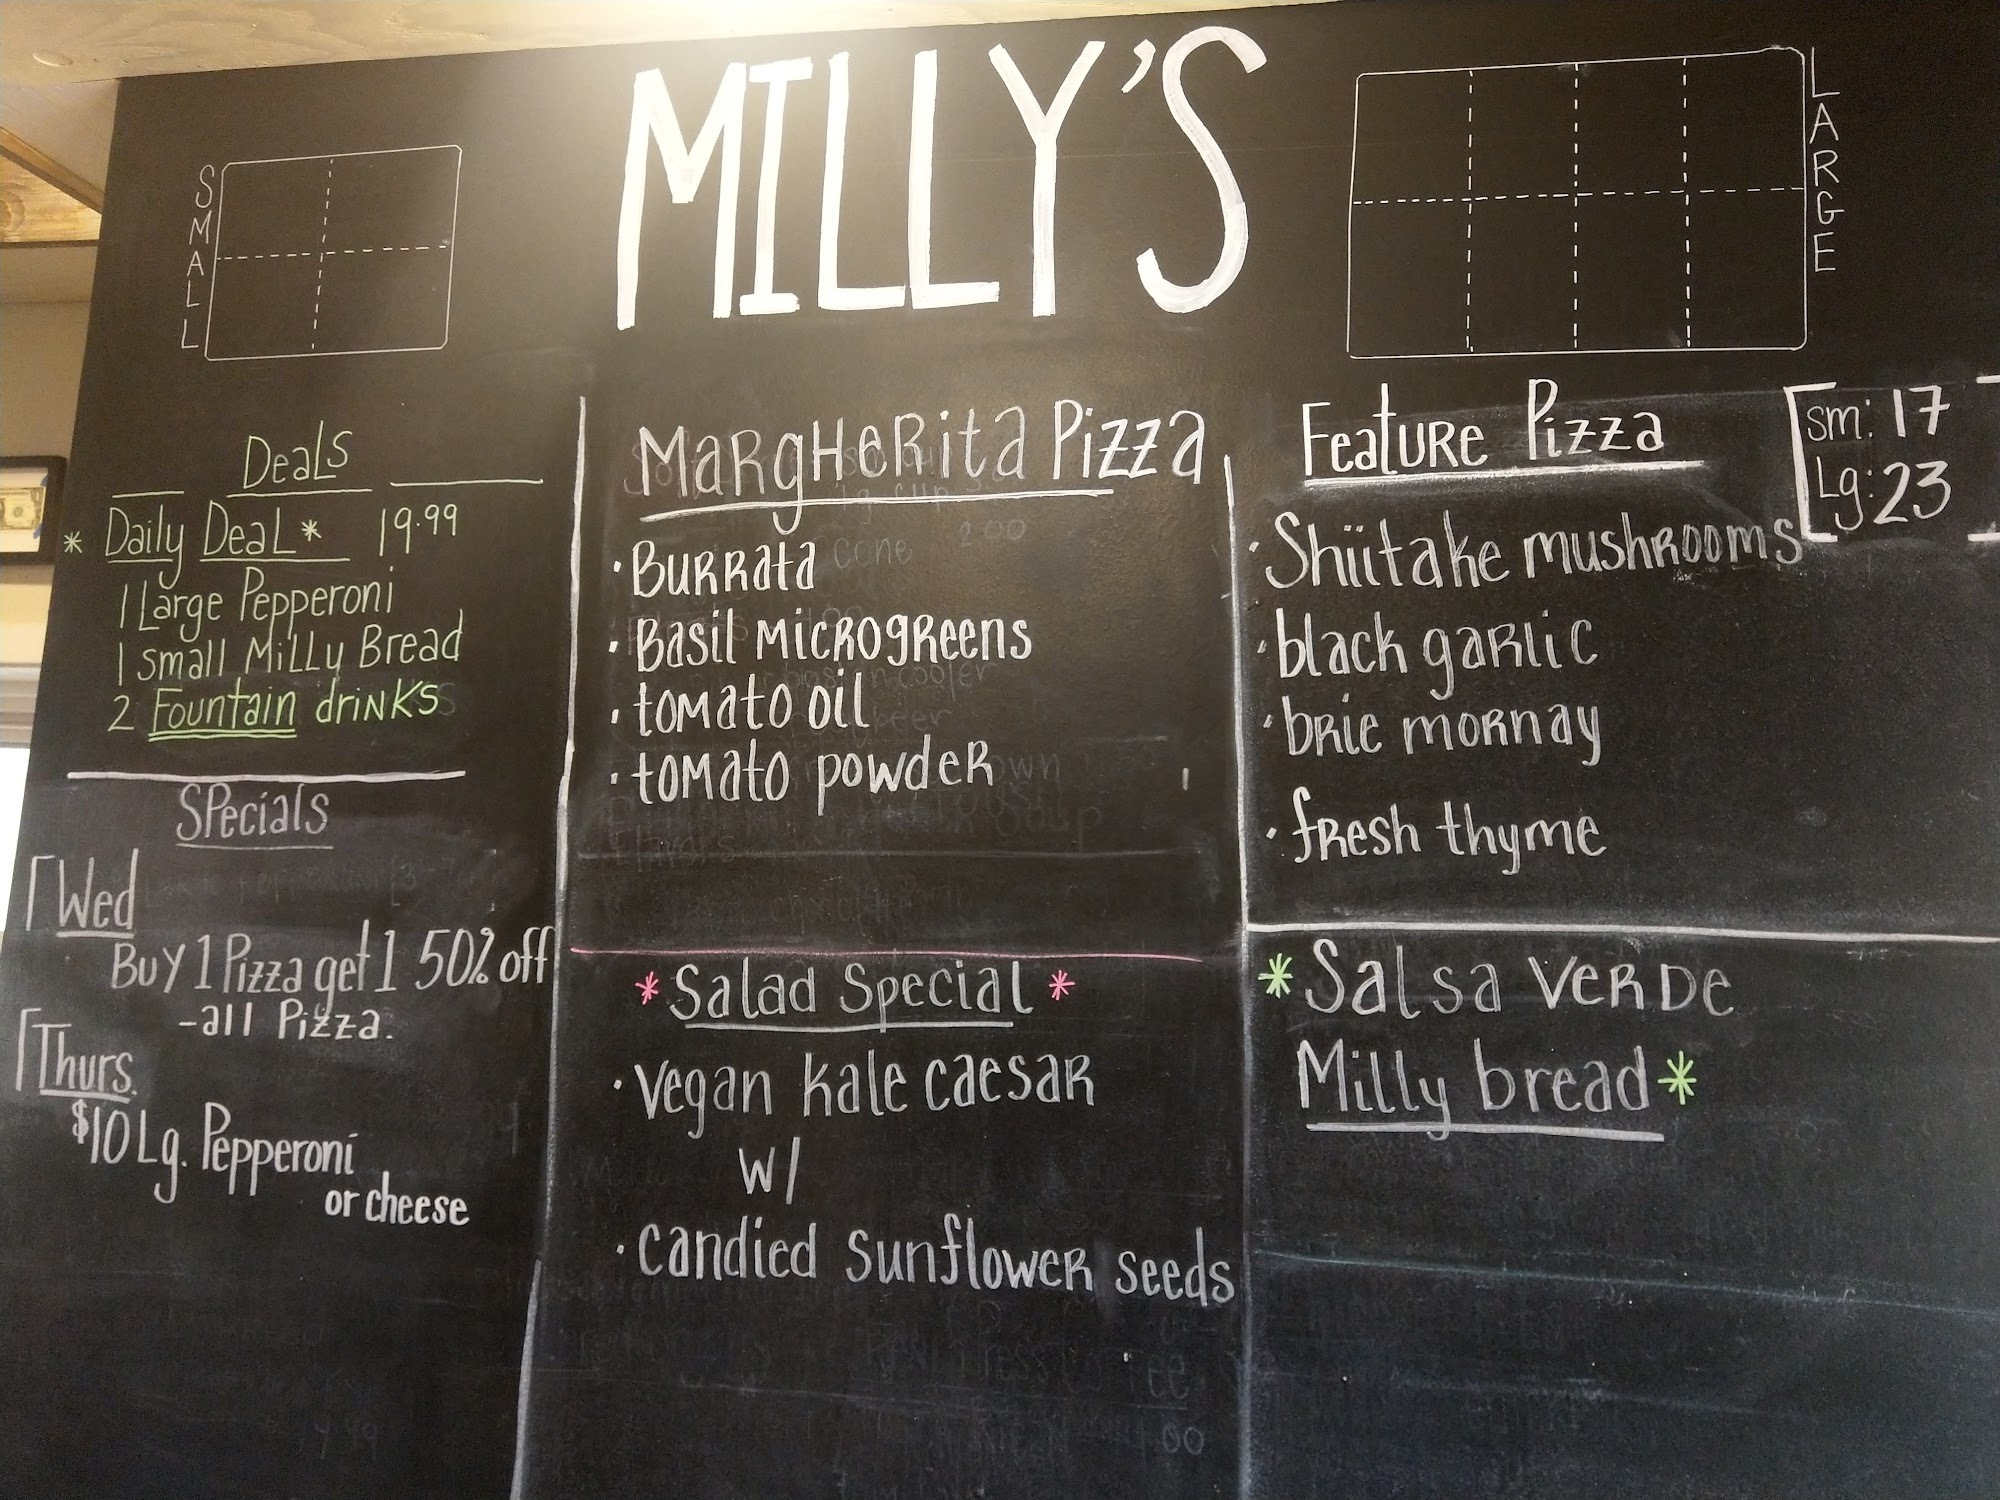 MILLY'S
SMALL
LARGE
Deals
* Daily Deal * 19.99
1 Large Pepperoni
1 small Milly Bread
2 Fountain drinks
Specials
Wed
Buy 1 Pizza get 1 50% off
-all Pizza.
Thurs.
$10 Lg. Pepperoni
or cheese
Margherita Pizza
· Burrata
· Basil microgreens
· tomato oil
· tomato powder
* Salad Special *
· vegan kale caesar
w/
· candied sunflower seeds
Feature Pizza
sm: 17
Lg: 23
· Shiitake mushrooms
· black garlic
· brie mornay
· fresh thyme
* Salsa verde
Milly bread *